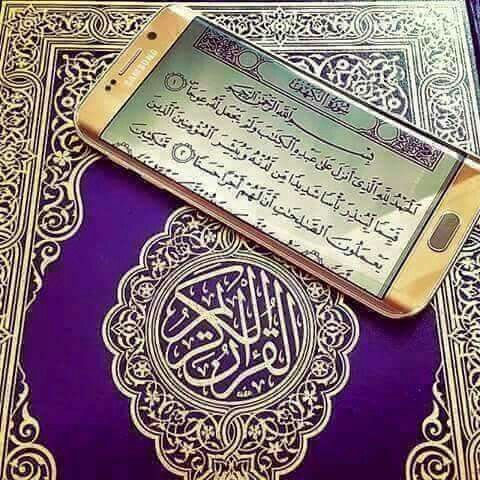 SAMSUNG
سُورَةُ الكَهْفِ
بِسْمِ اللَّهِ الرَّحْمَٰنِ الرَّحِيمِ
الْحَمْدُ لِلَّهِ الَّذِي أَنزَلَ عَلَىٰ عَبْدِهِ الْكِتَٰبَ وَلَمْ يَجْعَل لَّهُ عِوَجَا ١
قَيِّمًا لِّيُنذِرَ بَأْسًا شَدِيدًا مِّن لَّدُنْهُ وَيُبَشِّرَ الْمُؤْمِنِينَ الَّذِينَ
يَعْمَلُونَ الصَّٰلِحَٰتِ أَنَّ لَهُمْ أَجْرًا حَسَنًا ٢ مَّٰكِثِينَ
القرآن الكريم